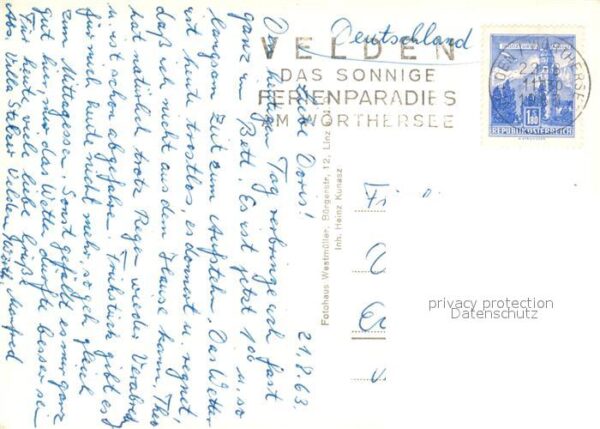 21.8.63.
Liebe Doris!
Den heutigen Tag verbringe ich fast
ganz im Bett. Es ist jetzt 1 00 u. so
langsam Zeit zum Aufstehn. Das Wetter
ist heute trostlos, es donnert u. regnet,
daß ich nicht aus dem Hause kann, Theo
hat natürlich trotz Regen wieder Verabred.
u. ist schon abgefahren. Frühstück gibt es
für mich heute nicht mehr, so geh gleich
zum Mittagessen. Sonst gefällt es mir ganz
gut hier, nur das Wetter dürfte besser sein
Für heut viele liebe Grüße
Manfred
Abs. Villa Stelzer Velden
Fotohaus Westmüller, Bürgerstr. 12, Linz
Inh. Heinz Kunasz
Deutschland
VELDEN
DAS SONNIGE
FERIENPARADIES
AM WÖRTHERSEE
1.50
REPUBLIK ÖSTERREICH
privacy protection
Datenschutz